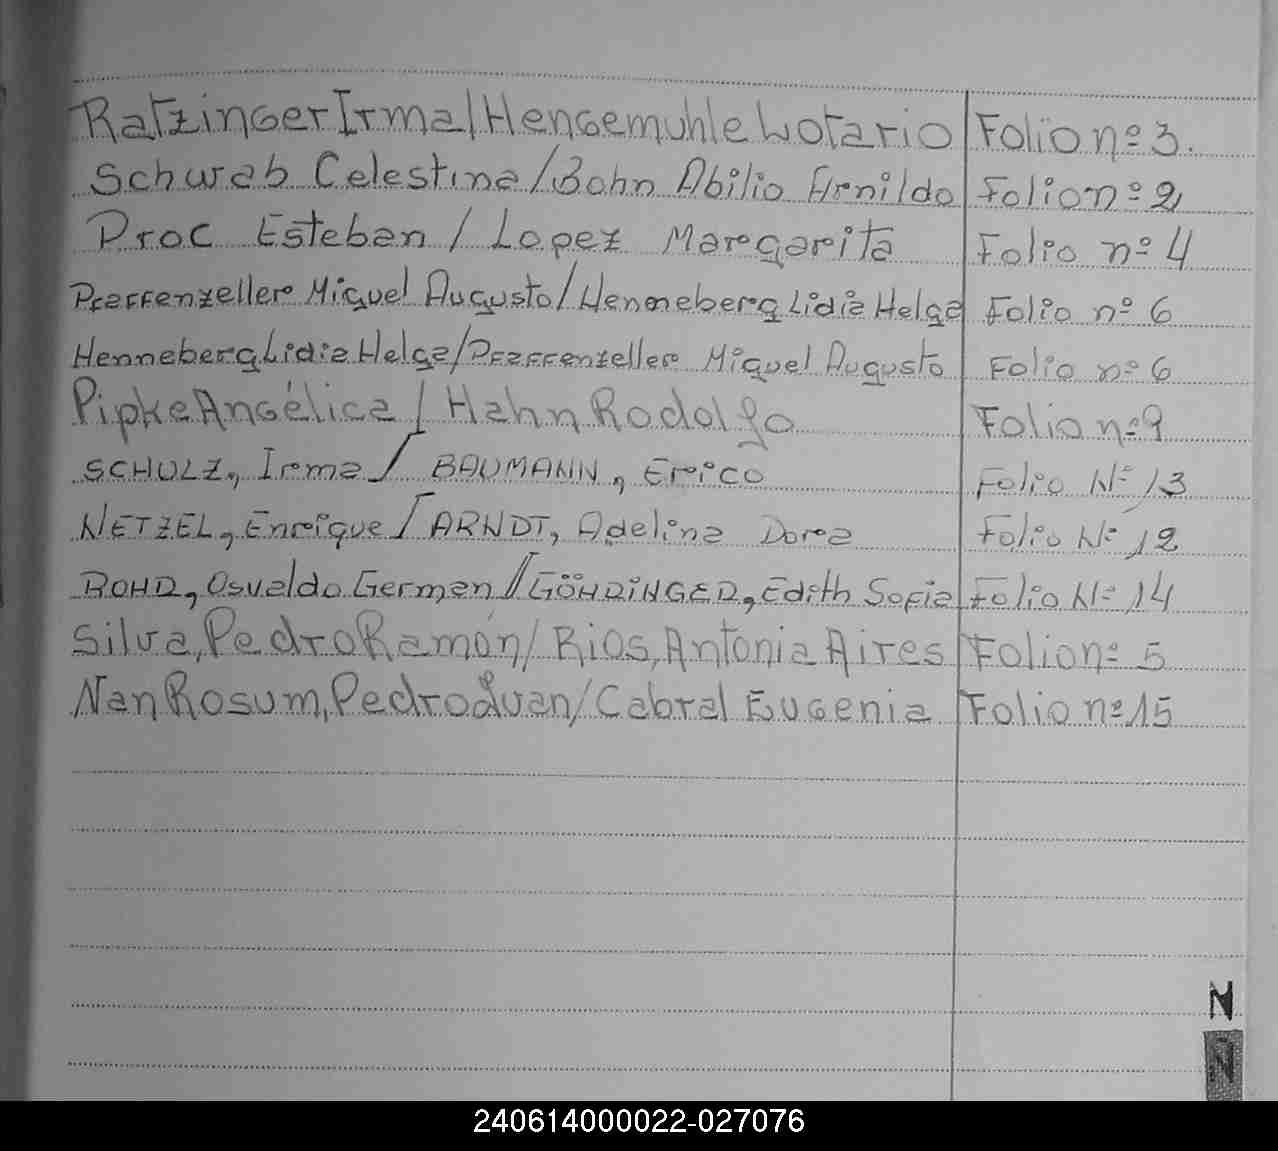 Ratzinger Irma / Hengemuhle Lotario Folio nº 3.
Schwab Celestina / Bohn Abilio Arnildo Folio nº 2
Proc Esteban / Lopez Margarita Folio nº 4
Pfaffenzeller Miguel Augusto / Henneberg Lidia Helga Folio nº 6
Henneberg Lidia Helga / Pfaffenzeller Miguel Augusto Folio nº 6
Pipke Angélica / Hahn Rodolfo Folio nº 9
SCHULZ, Irma / BAUMANN, Erico Folio Nº 13
NETZEL, Enrique / ARNDT, Adelina Dora Folio Nº 12
ROHR, Osvaldo German / GÖHRiNGER, Edith Sofia Folio Nº 14
Silva, Pedro Ramón / Rios, Antonia Aires Folio nº 5
Nan Rosum, Pedro Juan / Cabral Eugenia Folio nº 15
N
Ñ
240614000022-027076